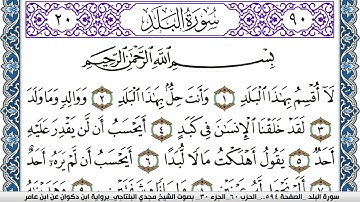 ٢٠ سُورَةُ الْبَلَدِ ٩٠
بِسْمِ اللَّهِ الرَّحْمَٰنِ الرَّحِيمِ
لَآ أُقْسِمُ بِهَٰذَا الْبَلَدِ ١ وَأَنتَ حِلٌّۢ بِهَٰذَا الْبَلَدِ ٢ وَوَالِدٍ وَمَا وَلَدَ
٣ لَقَدْ خَلَقْنَا الْإِنسَٰنَ فِي كَبَدٍ ٤ أَيَحْسِبُ أَن لَّن يَقْدِرَ عَلَيْهِ
أَحَدٌ ٥ يَقُولُ أَهْلَكْتُ مَالًا لُّبَدًا ٦ أَيَحْسِبُ أَن لَّمْ يَرَهُۥٓ أَحَدٌ
٧ أَلَمْ نَجْعَل لَّهُۥ عَيْنَيْنِ ٨ وَلِسَانًا وَشَفَتَيْنِ ٩
سورة البلد _ الصفحة ٥٩٤ _ الجزء ٦٠ _ الجزء ٣٠ _ بصوت الشيخ مجدي البلتاجي _ برواية ابن ذكوان عن ابن عامر